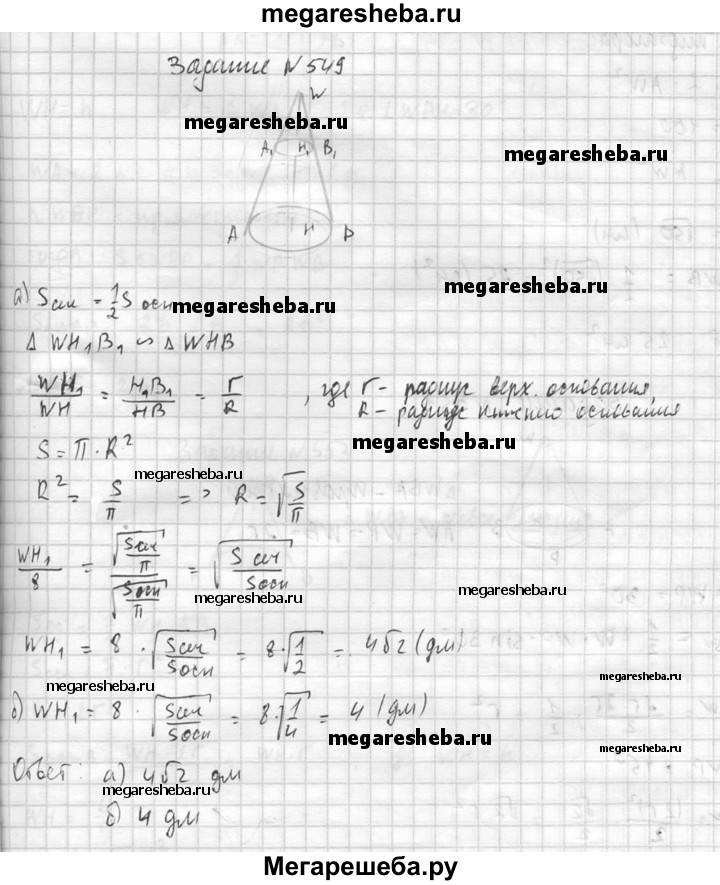 megaresheba.ru
Задание N 549
W
megaresheba.ru
A₁ H₁ B₁
megaresheba.ru
A H B
megaresheba.ru
а) Sсеч = 1/2 Sосн
megaresheba.ru
Δ WH₁B₁ ∽ Δ WHB
WH₁/WH = H₁B₁/HB = r/R , где r – радиус верх. основания,
R – радиус нижнего основания
megaresheba.ru
S = π · R²
megaresheba.ru
R² = S/π => R = √(S/π)
WH₁/8 = √(Sсеч/π)/√(Sосн/π) = √(Sсеч/Sосн)
megaresheba.ru
megaresheba.ru
WH₁ = 8 · √(Sсеч/Sосн) = 8·√(1/2) = 4√2 (дм)
megaresheba.ru
megaresheba.ru
б) WH₁ = 8 · √(Sсеч/Sосн) = 8·√(1/4) = 4 (дм)
megaresheba.ru
megaresheba.ru
Ответ: а) 4√2 дм
megaresheba.ru
б) 4 дм
Мегарешеба.ру